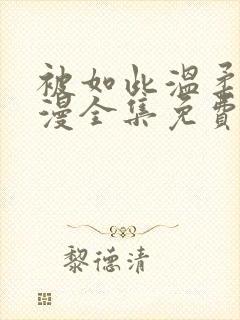 被如此温柔
漫全集免費
黎德清